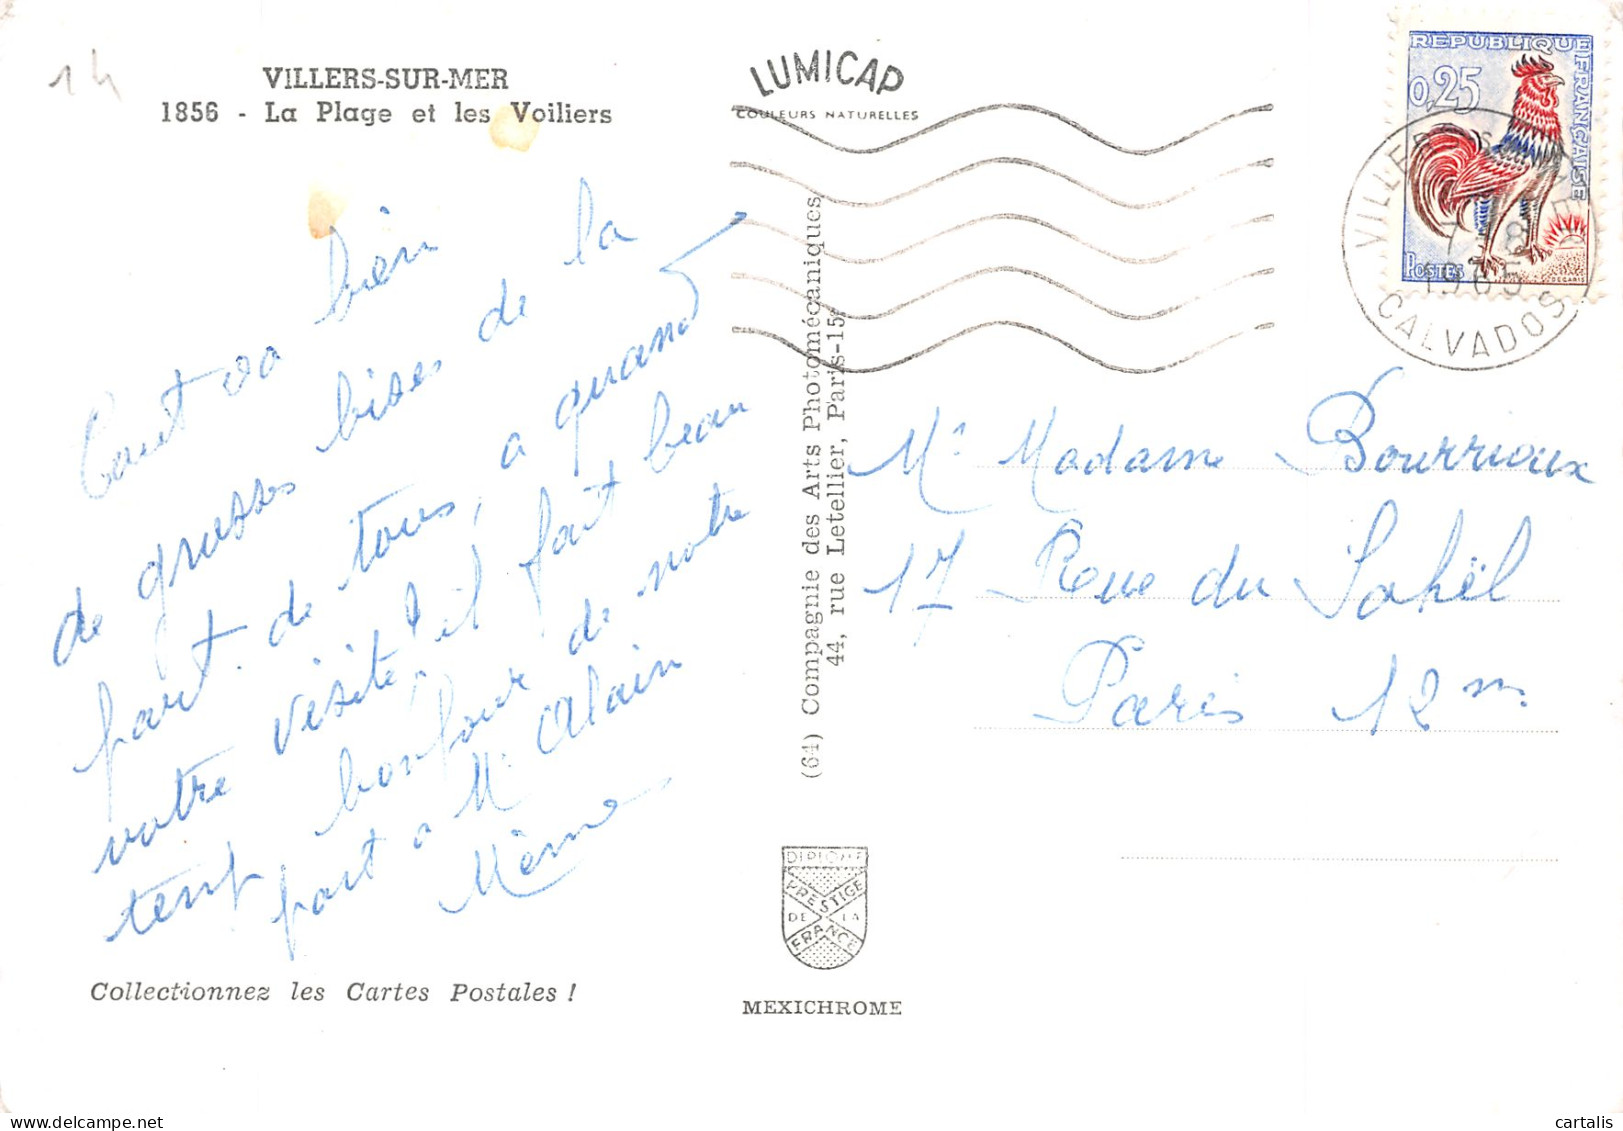 14
VILLERS-SUR-MER
1856 - La Plage et les Voiliers
LUMICAP
COULEURS NATURELLES
REPUBLIQUE FRANÇAISE
0,25
POSTES
DECARIS
VILLERS S MER
7-8
1965
CALVADOS
Tout va bien
de grosses bises de la
part de tous, a quand
votre visite, il fait beau
temp bonjour de notre
part a Mr Alain
Mème
(64) Compagnie des Arts Photomécaniques
44, rue Letellier, Paris-15e
Mr Madame Bourrioux
17 Rue du Sahël
Paris 12m
DIPLOME
PRESTIGE
DE LA
FRANCE
Collectionnez les Cartes Postales !
MEXICHROME
www.delcampe.net
cartalis